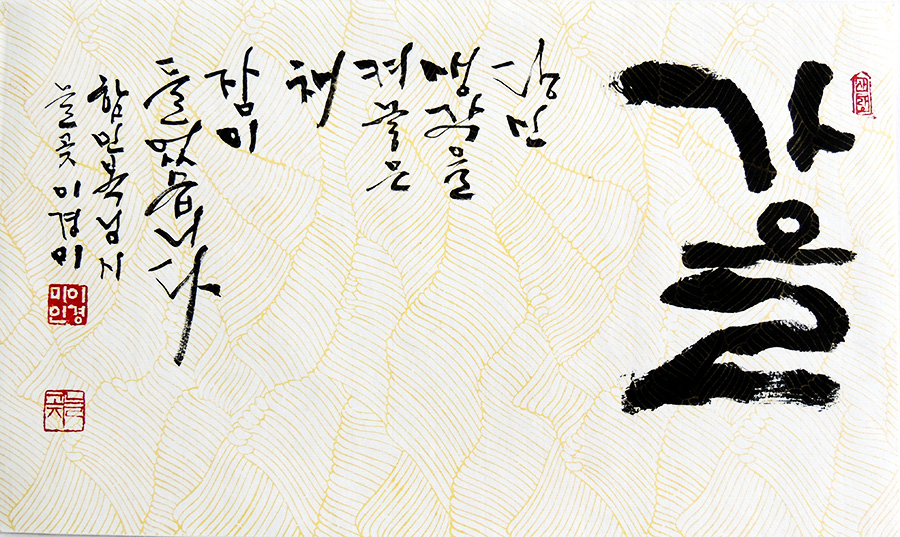 가을
당신
생각을
켜놓은
채
잠이
들었습니다
함민복님 시
이경미
이경
미인